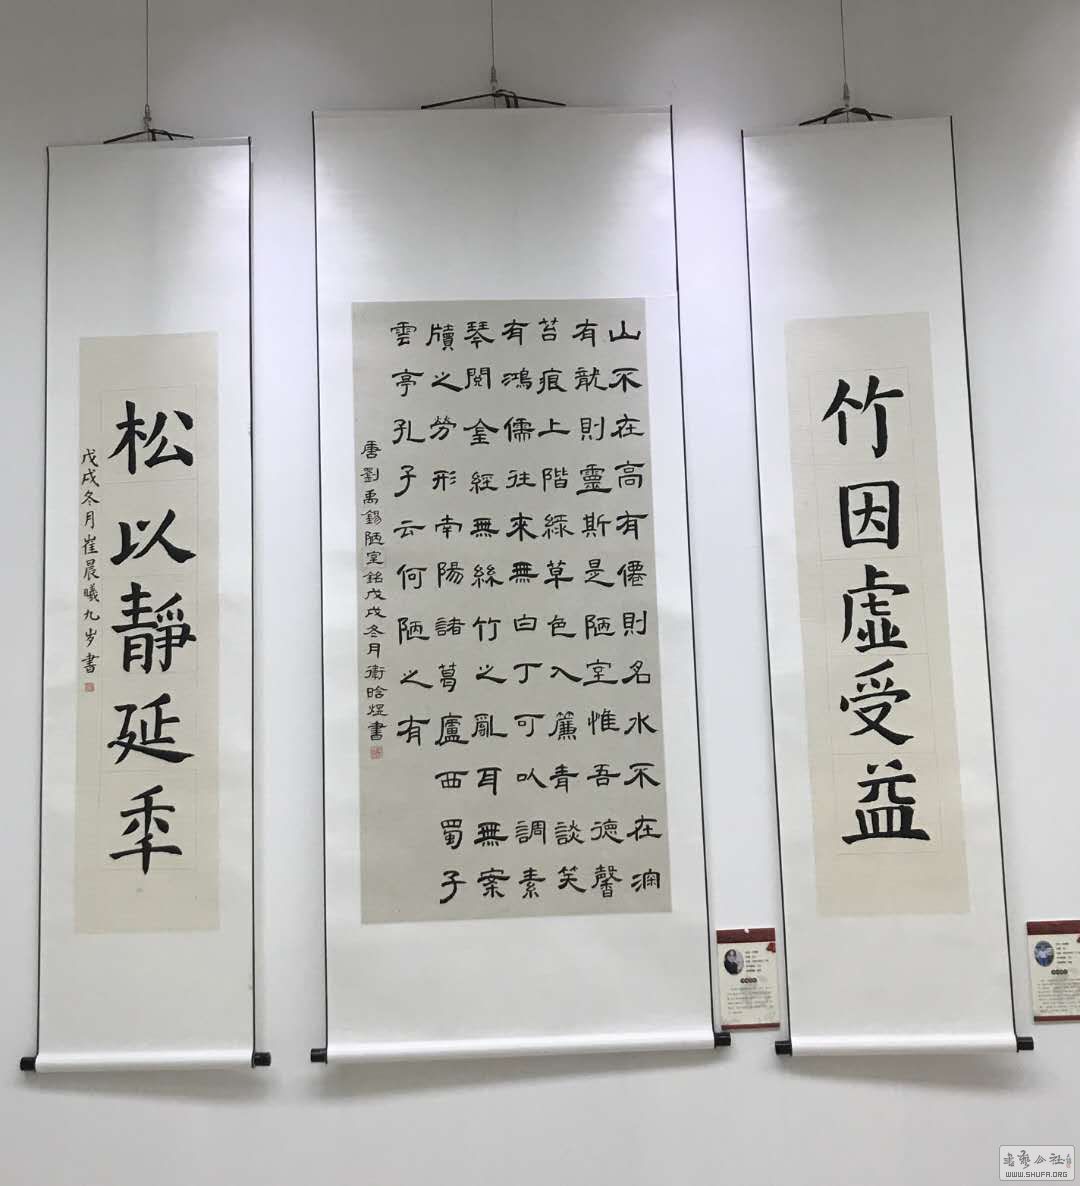 竹因虚受益
山不在高有僊則名水不在深
有龍則靈斯是陋室惟吾德馨
苔痕上階綠草色入簾青談笑
有鴻儒往來無白丁可以調素
琴閱金經無絲竹之亂耳無案
牘之勞形南陽諸葛廬西蜀子
雲亭孔子云何陋之有
唐劉禹錫陋室銘戊戌冬月衛晗煜書
松以靜延年
戊戌冬月崔晨曦九岁書
书艺公社
WWW.SHUFA.ORG